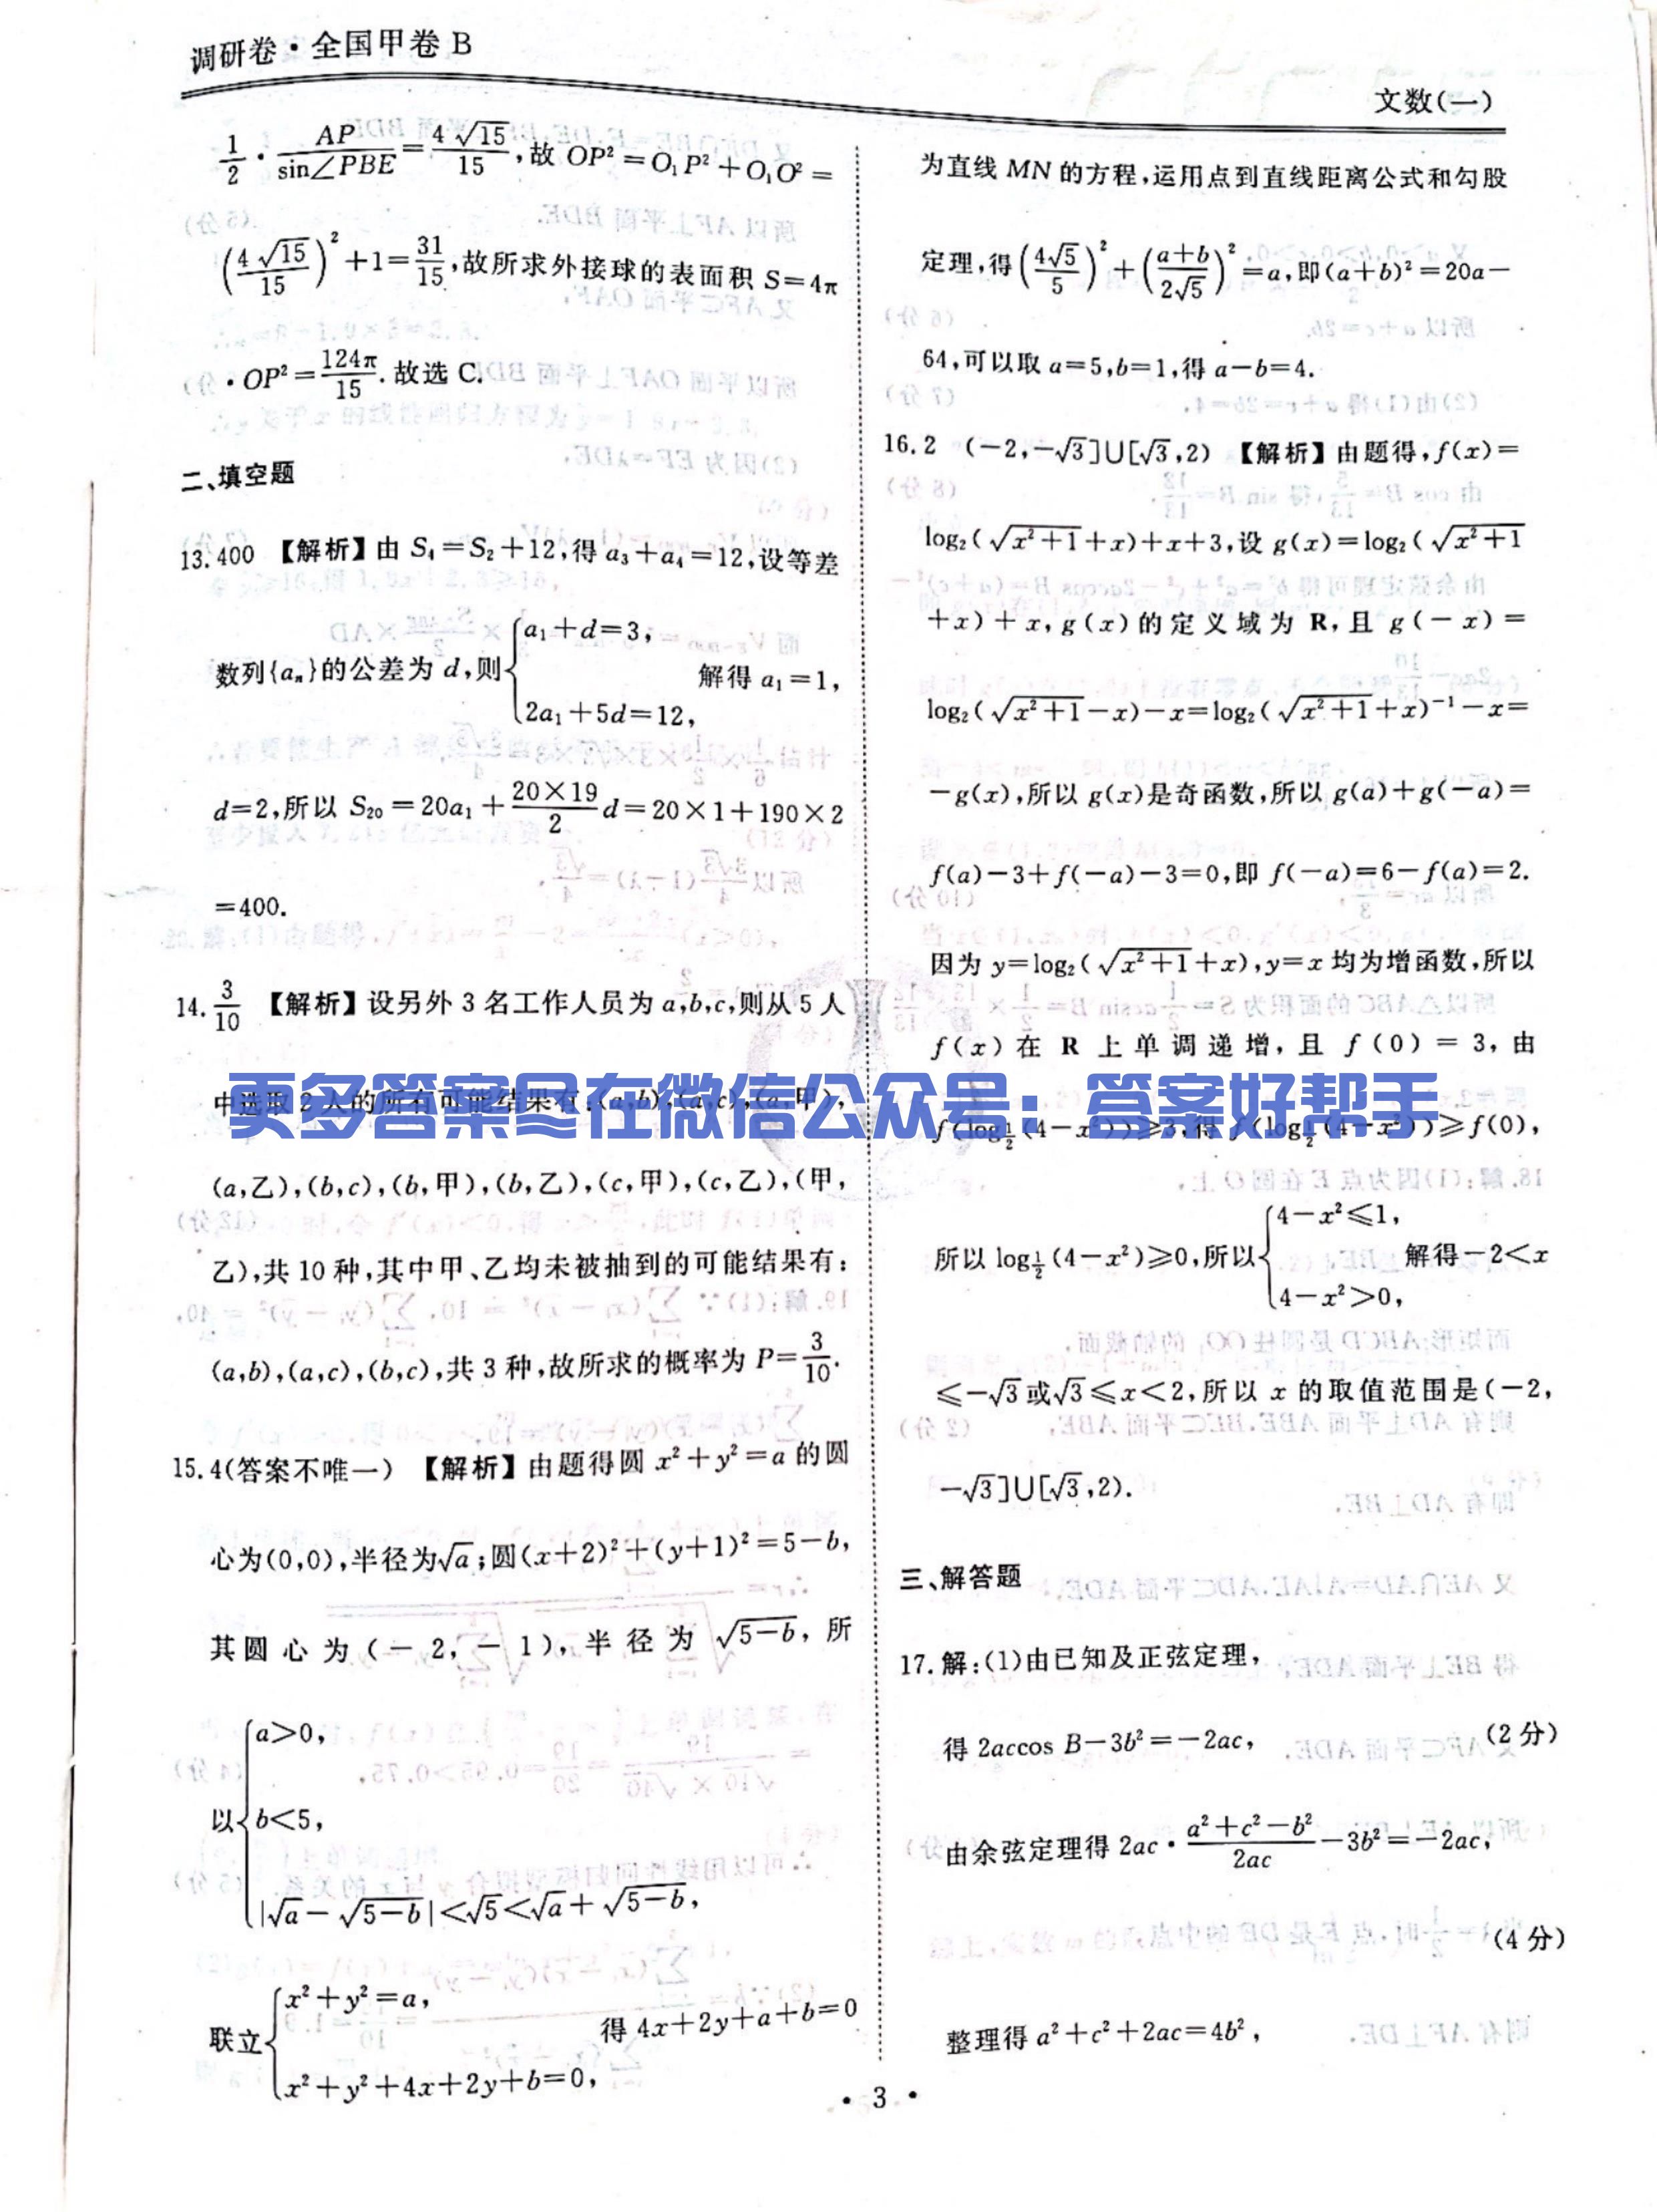 调研卷·全国甲卷 B
文数(一)
1/2 · AP/sin∠PBE = 4√15/15, 故 OP² = O₁P² + O₁O² =
(4√15/15)² + 1 = 31/15, 故所求外接球的表面积 S=4π
· OP² = 124π/15. 故选 C.
二、填空题
13. 400 【解析】由 S₄=S₂+12, 得 a₃+a₄=12, 设等差
数列{aₙ}的公差为 d, 则 { a₁+d=3, 2a₁+5d=12, 解得 a₁=1,
d=2, 所以 S₂₀=20a₁+ 20×19/2 d=20×1+190×2
=400.
14. 3/10 【解析】设另外 3 名工作人员为 a,b,c, 则从 5 人
中选取 2 人的所有可能结果有:(a,b),(a,c),(a,甲),
(a,乙),(b,c),(b,甲),(b,乙),(c,甲),(c,乙),(甲,
乙), 共 10 种, 其中甲、乙均未被抽到的可能结果有:
(a,b),(a,c),(b,c), 共 3 种, 故所求的概率为 P=3/10.
15. 4(答案不唯一) 【解析】由题得圆 x²+y²=a 的圆
心为(0,0), 半径为√a; 圆(x+2)²+(y+1)²=5−b,
其圆心为(−2,−1), 半径为 √(5−b), 所
以 { a>0, b<5, |√a−√(5−b)|<√5<√a+√(5−b),
联立 { x²+y²=a, x²+y²+4x+2y+b=0, 得 4x+2y+a+b=0
为直线 MN 的方程, 运用点到直线距离公式和勾股
定理, 得 (4√5/5)² + ((a+b)/(2√5))² =a, 即(a+b)²=20a−
64, 可以取 a=5,b=1, 得 a−b=4.
16. 2 (−2,−√3]∪[√3,2) 【解析】由题得, f(x)=
log₂(√(x²+1)+x)+x+3, 设 g(x)=log₂(√(x²+1)
+x)+x, g(x)的定义域为 R, 且 g(−x)=
log₂(√(x²+1)−x)−x=log₂(√(x²+1)+x)⁻¹−x=
−g(x), 所以 g(x)是奇函数, 所以 g(a)+g(−a)=
f(a)−3+f(−a)−3=0, 即 f(−a)=6−f(a)=2.
因为 y=log₂(√(x²+1)+x), y=x 均为增函数, 所以
f(x)在 R 上单调递增, 且 f(0)=3, 由
f(log_{1/2}(4−x²))≥3, 得 f(log_{1/2}(4−x²))≥f(0),
更多答案尽在微信公众号:答案好帮手
所以 log_{1/2}(4−x²)≥0, 所以 { 4−x²≤1, 4−x²>0, 解得−2<x
≤−√3或√3≤x<2, 所以 x 的取值范围是(−2,
−√3]∪[√3,2).
三、解答题
17. 解:(1)由已知及正弦定理,
得 2accos B−3b²=−2ac, (2 分)
由余弦定理得 2ac · (a²+c²−b²)/2ac −3b²=−2ac,
(4 分)
整理得 a²+c²+2ac=4b²,
· 3 ·